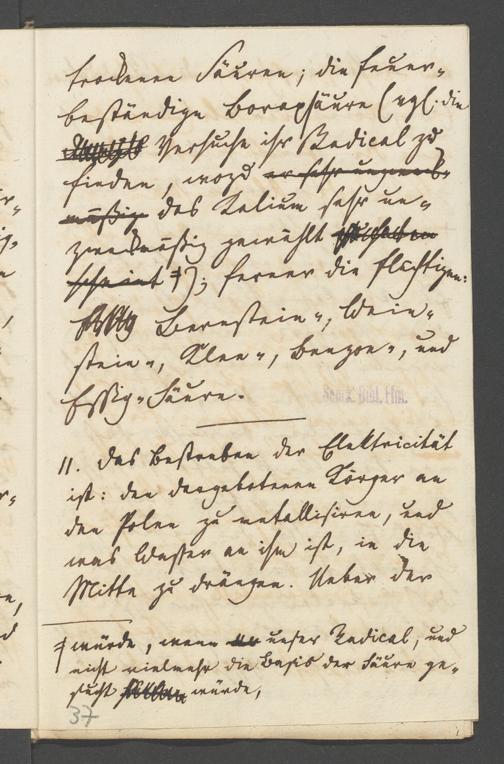 trockenen Säuren; die feuer-
beständige Boraxsäure (vgl. die
Versuche ihr Radical zu
finden, wozu er sehr unzweck-
mäßig das Kalium sehr un-
zweckmäßig gewählt
scheint ‡); ferner die flüchtigen:
Bernstein-, Wein-
stein-, Klee-, Benzoe-, und
Essig-Säure.
Senck. Bibl. Ffm.
11. Das Bestreben der Elektricität
ist: den dargebotenen Körper an
den Polen zu metallisiren, und
was Wasser an ihm ist, in die
Mitte zu drängen. Ueber der
‡ würde, wenn unser Radical, und
nicht vielmehr die Basis der Säure ge-
sucht würde,
37